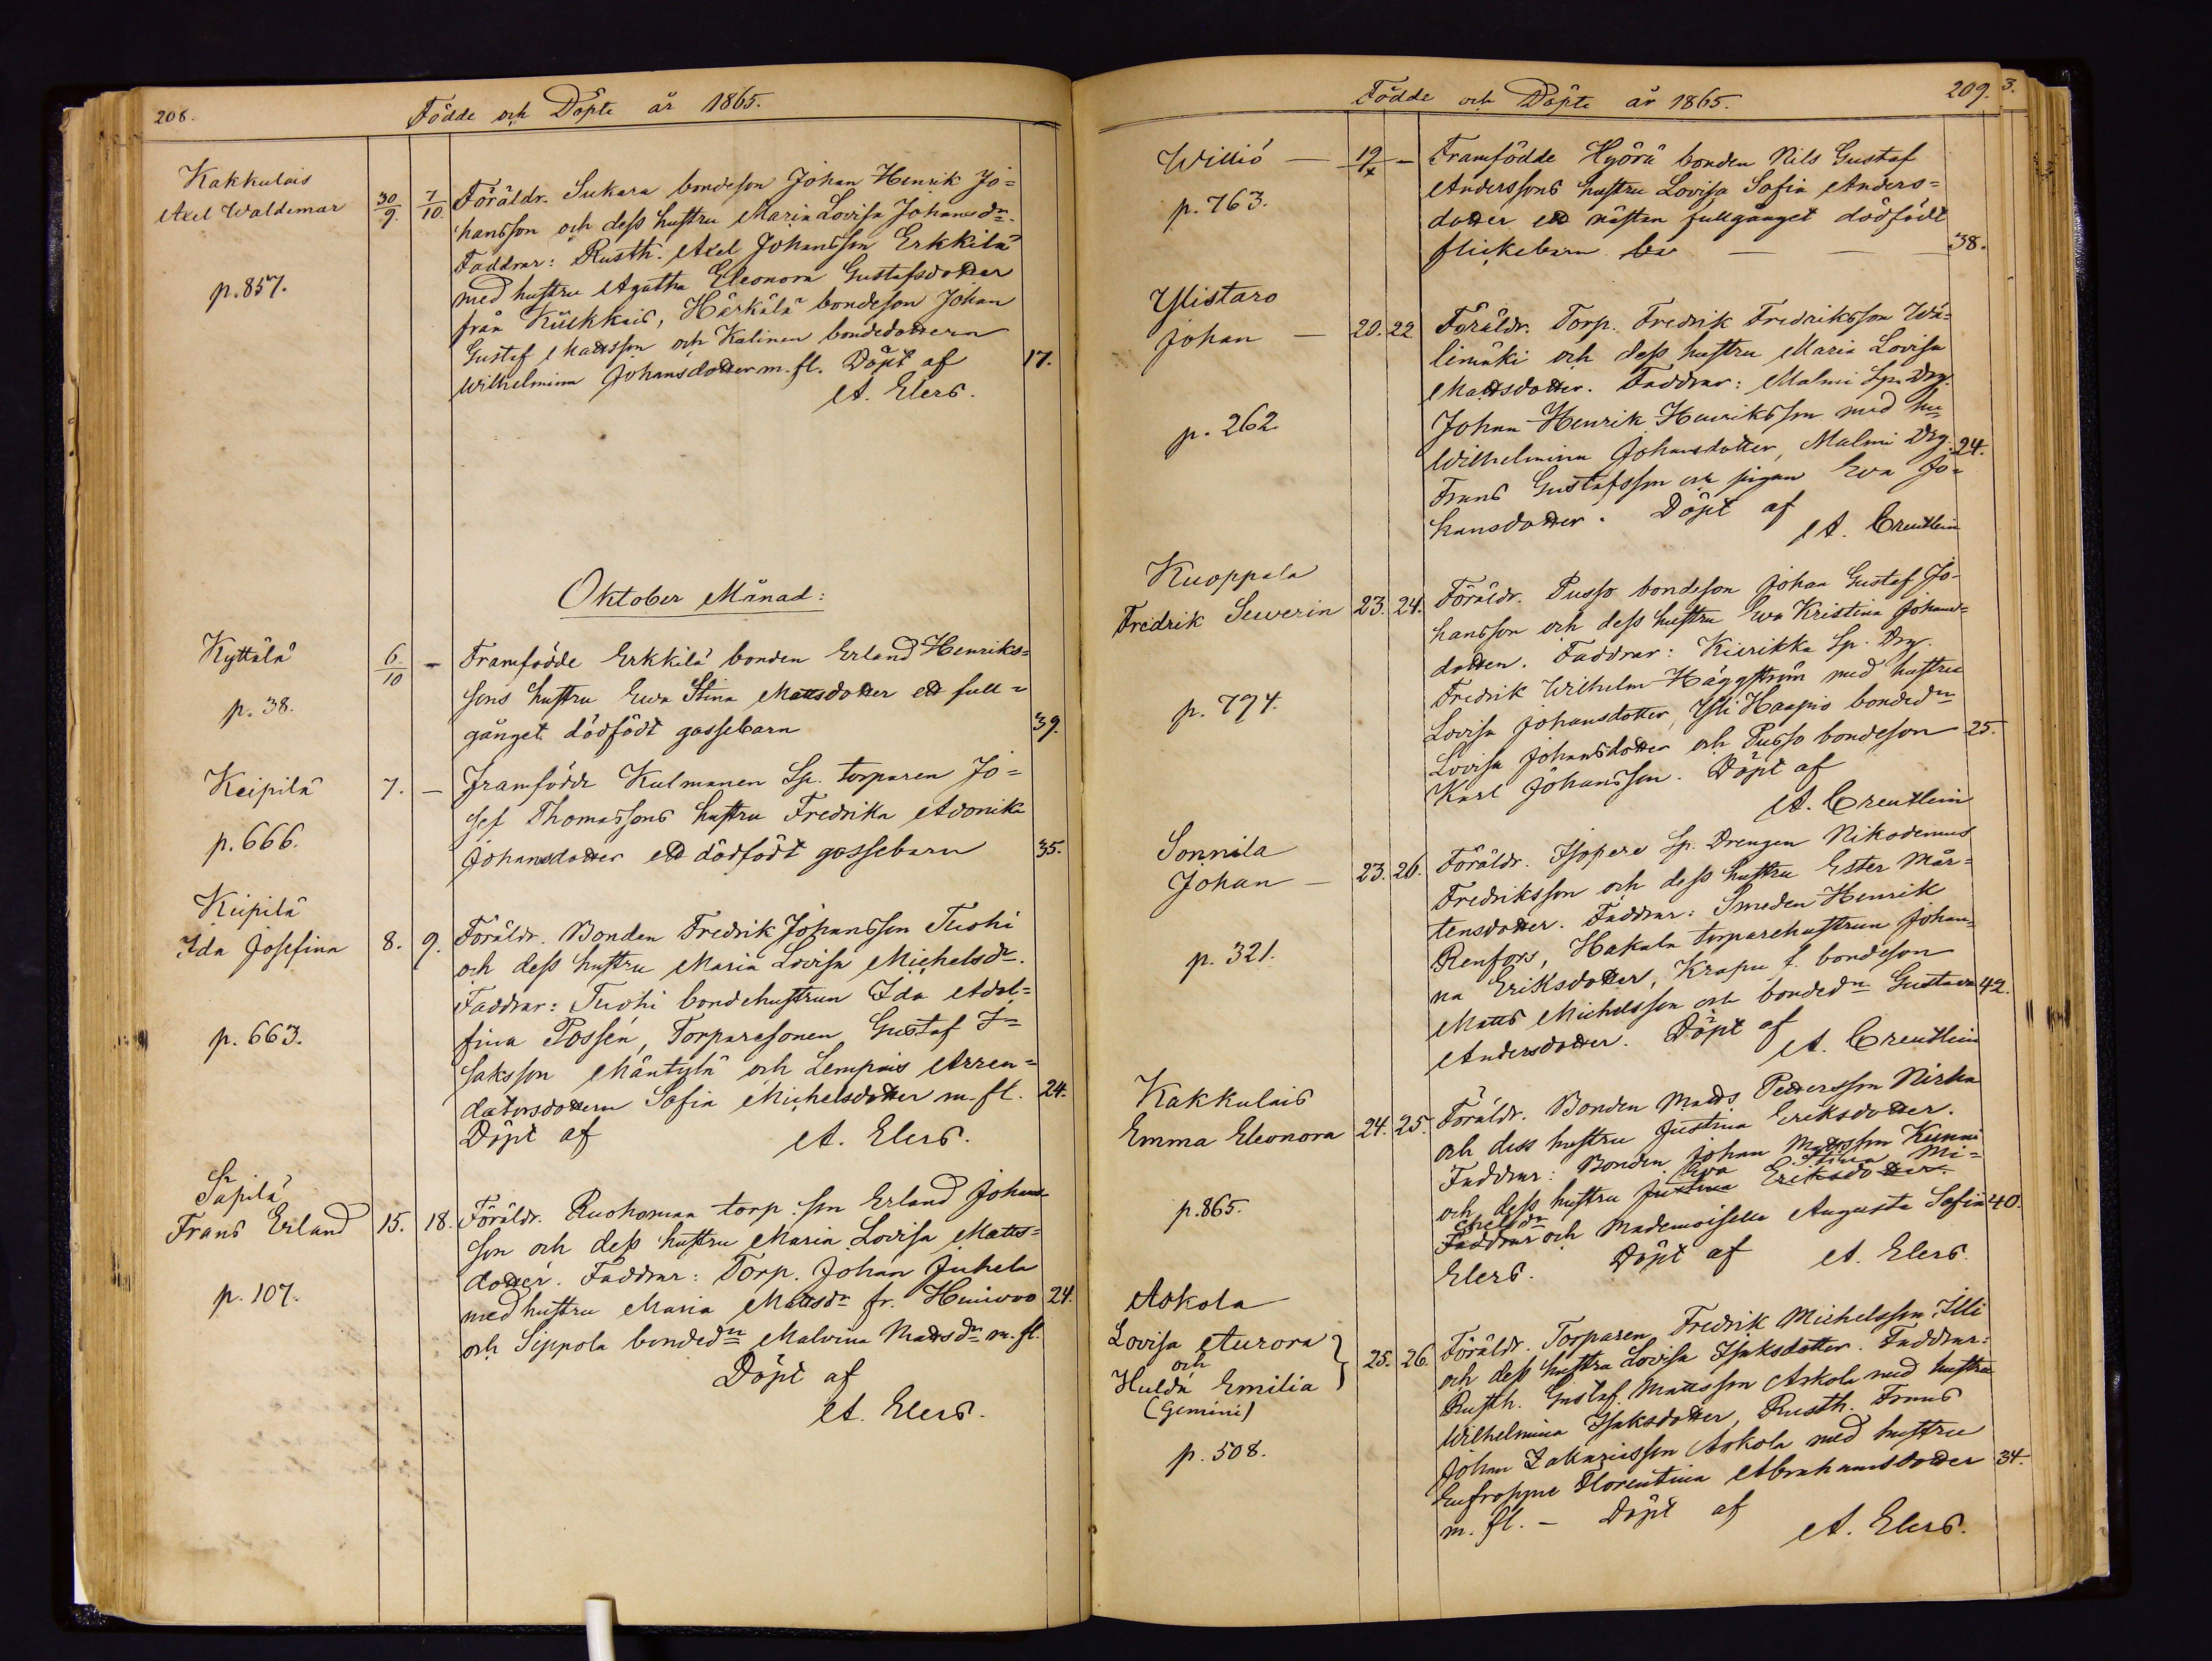 208.
Födde och Döpte år 1865.
Kakkulais
Axel Waldemar
30/9.
7/10.
p. 857.
Föräldr. Sukara bondeson Johan Henrik Jo=
hansson och dess hustru Maria Lovisa Johansdr.
Faddrar: Rusth. Axel Johansson Erkkilä
med hustru Agatha Eleonora Gustafsdotter
från Kiikkais, Härkälä bondeson Johan
Gustaf Mattsson och Kalinen bondedottern
Wilhelmina Johansdotter m. fl. Döpt af
17.
A. Elers.
Oktober Månad:
Kyttälä
6/10
-
p. 38.
Framfödde Erkkilä bonden Erland Henriks=
sons hustru Ewa Stina Mattsdotter ett full=
gånget dödfödt gossebarn
39.
Keipilä
7.
-
p. 666.
Framfödde Kulmanen Sp. torparen Jo=
sef Thomassons hustru Fredrika Adonika
Johansdotter ett dödfödt gossebarn
35.
Keipilä
Ida Josefina
8.
9.
p. 663.
Föräldr. Bonden Fredrik Johansson Tuohi
och dess hustru Maria Lovisa Michelsdr.
Faddrar: Tuohi bondehustrun Ida Adol=
fina Possén, Torparesonen Gustaf I=
saksson Mäntylä och Lempois Arren=
datorsdottern Sofia Michelsdotter m. fl.
24.
Döpt af
A. Elers.
Sr
Sapilä
Frans Erland
15.
18.
p. 107.
Föräldr. Ruohomaa torp. son Erland Johans
son och dess hustru Maria Lovisa Matts=
dotter. Faddrar: Torp. Johan Juhela
med hustru Maria Mattsdr fr. Huiwoo
24.
och Sippola bondedr Malvina Mattsdr m. fl.
Döpt af
A. Elers.
Födde och Döpte år 1865.
209.
3.
Williö
19/x
-
p. 763.
Framfödde Hyörä bonden Nils Gustaf
Anderssons hustru Lovisa Sofia Anders=
dotter ett nästan fullgånget dödfödt
flickebarn
38.
Ylistaro
Johan
20.
22
p. 262
Föräldr. Torp. Fredrik Fredriksson Wä=
limäki och dess hustru Maria Lovisa
Mattsdotter. Faddrar: Malmi Sp. Drg.
Johan Henrik Henriksson med hu
Wilhelmina Johansdotter, Malmi Drg.
24.
Frans Gustafsson och pigan Ewa Jo=
hansdotter. Döpt af
A. Creutlein
Kuoppala
Fredrik Sewerin
23.
24.
p. 794.
Föräldr. Pusso bondeson Johan Gustaf Jo-
hansson och dess hustru Ewa Kristina Johans=
dotter. Faddrar: Kiirikka Sp. Drg.
Fredrik Wilhelm Häggström med hustru
Lovisa Johansdotter, Yli Haapio bondedr
Lovisa Johansdotter och Pusso bondeson
25.
Karl Johansson. Döpt af
A. Creutlein
Sonnila
Johan
23.
26.
p. 321.
Föräldr. Isopere Sp. Drengen Nikodemus
Fredriksson och dess hustru Ester Mår=
tensdotter. Faddrar: Smeden Henrik
Renfors, Hakala torparehustrun Johan=
na Eriksdotter, Krapu f. bondeson
Matts Michelsson och bondedr Gustava
42.
Andersdotter. Döpt af
A. Creutlein
Kakkulais
Emma Eleonora
24.
25.
p. 865.
Föräldr. Bonden Matts Pettersson Nirka
och dess hustru Justina Eriksdotter.
Faddrar: Bonden Johan Mattsson Kunni
Ewa Stina Mi=
och dess hustru Justina Eriksdotter.
chelsdr
Faddrar och Mademoiselle Augusta Sofia
40.
Elers. Döpt af A. Elers.
Askola
Lovisa Aurora
och
Hulda Emilia
(Gemini)
25.
26.
p. 508.
Föräldr. Torparen Fredrik Michelsson Illi
och dess hustru Lovisa Isaksdotter. Faddrar:
Rusth. Gustaf Mattsson Askola med hustru
Wilhelmina Isaksdotter, Rusth. Frans
Johan Zakariasson Askola med hustru
Eufrosyne Florentina Abrahamsdotter
34.
m. fl. - Döpt af
A. Elers.